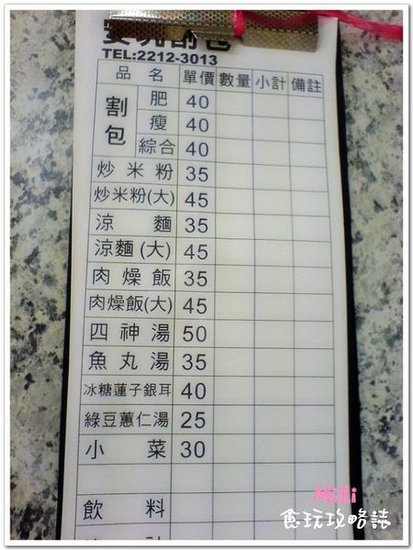 TEL:2212-3013
品名 單價 數量 小計 備註
割包 肥 40
瘦 40
綜合 40
炒米粉 35
炒米粉(大) 45
涼麵 35
涼麵(大) 45
肉燥飯 35
肉燥飯(大) 45
四神湯 50
魚丸湯 35
冰糖蓮子銀耳 40
綠豆薏仁湯 25
小菜 30
飲料
Mibi
食玩攻略誌